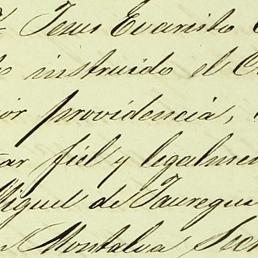 Jesus Evaristo
instruido el
por providencia,
fiel y legalmen
Miguel de Jauregui
Montalva Secr